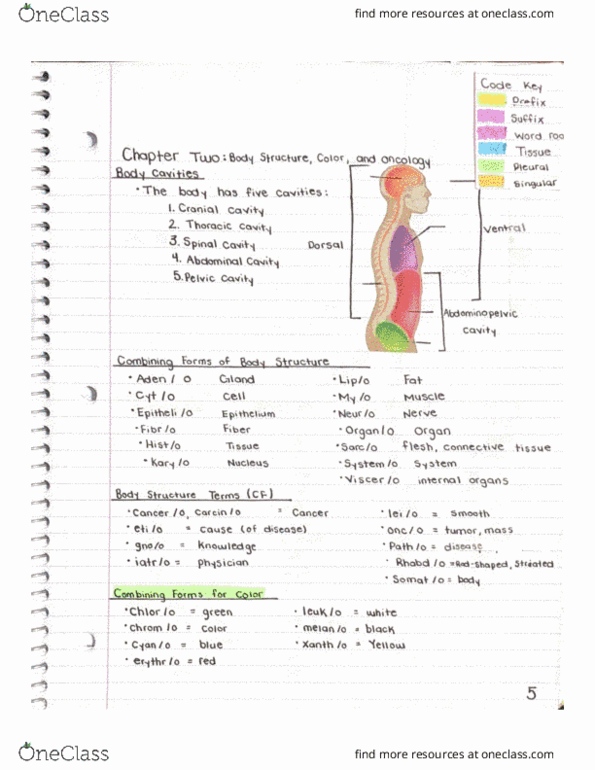 OneClass
find more resources at oneclass.com
Code Key
Prefix
Suffix
Word Roo
Tissue
Pleural
Singular
Chapter Two: Body Structure, Color, and oncology
Body Cavities
• The body has five cavities:
1. Cranial cavity
2. Thoracic cavity
3. Spinal Cavity
4. Abdominal Cavity
5. Pelvic Cavity
Dorsal
Ventral
Abdominopelvic
cavity
Combining Forms of Body Structure
• Aden / o Gland
• Cyt / o Cell
• Epitheli / o Epithelium
• Fibr / o Fiber
• Hist / o Tissue
• Kary / o Nucleus
• Lip/o Fat
• My / o Muscle
• Neur / o Nerve
• Organ / o Organ
• Sarc / o flesh, connective tissue
• System / o System
• Viscer / o internal organs
Body Structure Terms (CF)
• Cancer / o, carcin / o = Cancer
• eti / o = cause (of disease)
• gno/o = Knowledge
• iatr / o = physician
• lei / o = smooth
• onc / o = tumor, mass
• Path / o = disease
• Rhabd / o = Rod-shaped, Striated
• Somat / o = body
Combining Forms for Color
• Chlor / o = green
• chrom / o = color
• Cyan / o = blue
• erythr / o = red
• leuk / o = white
• melan / o = black
• Xanth / o = Yellow
5
OneClass
find more resources at oneclass.com